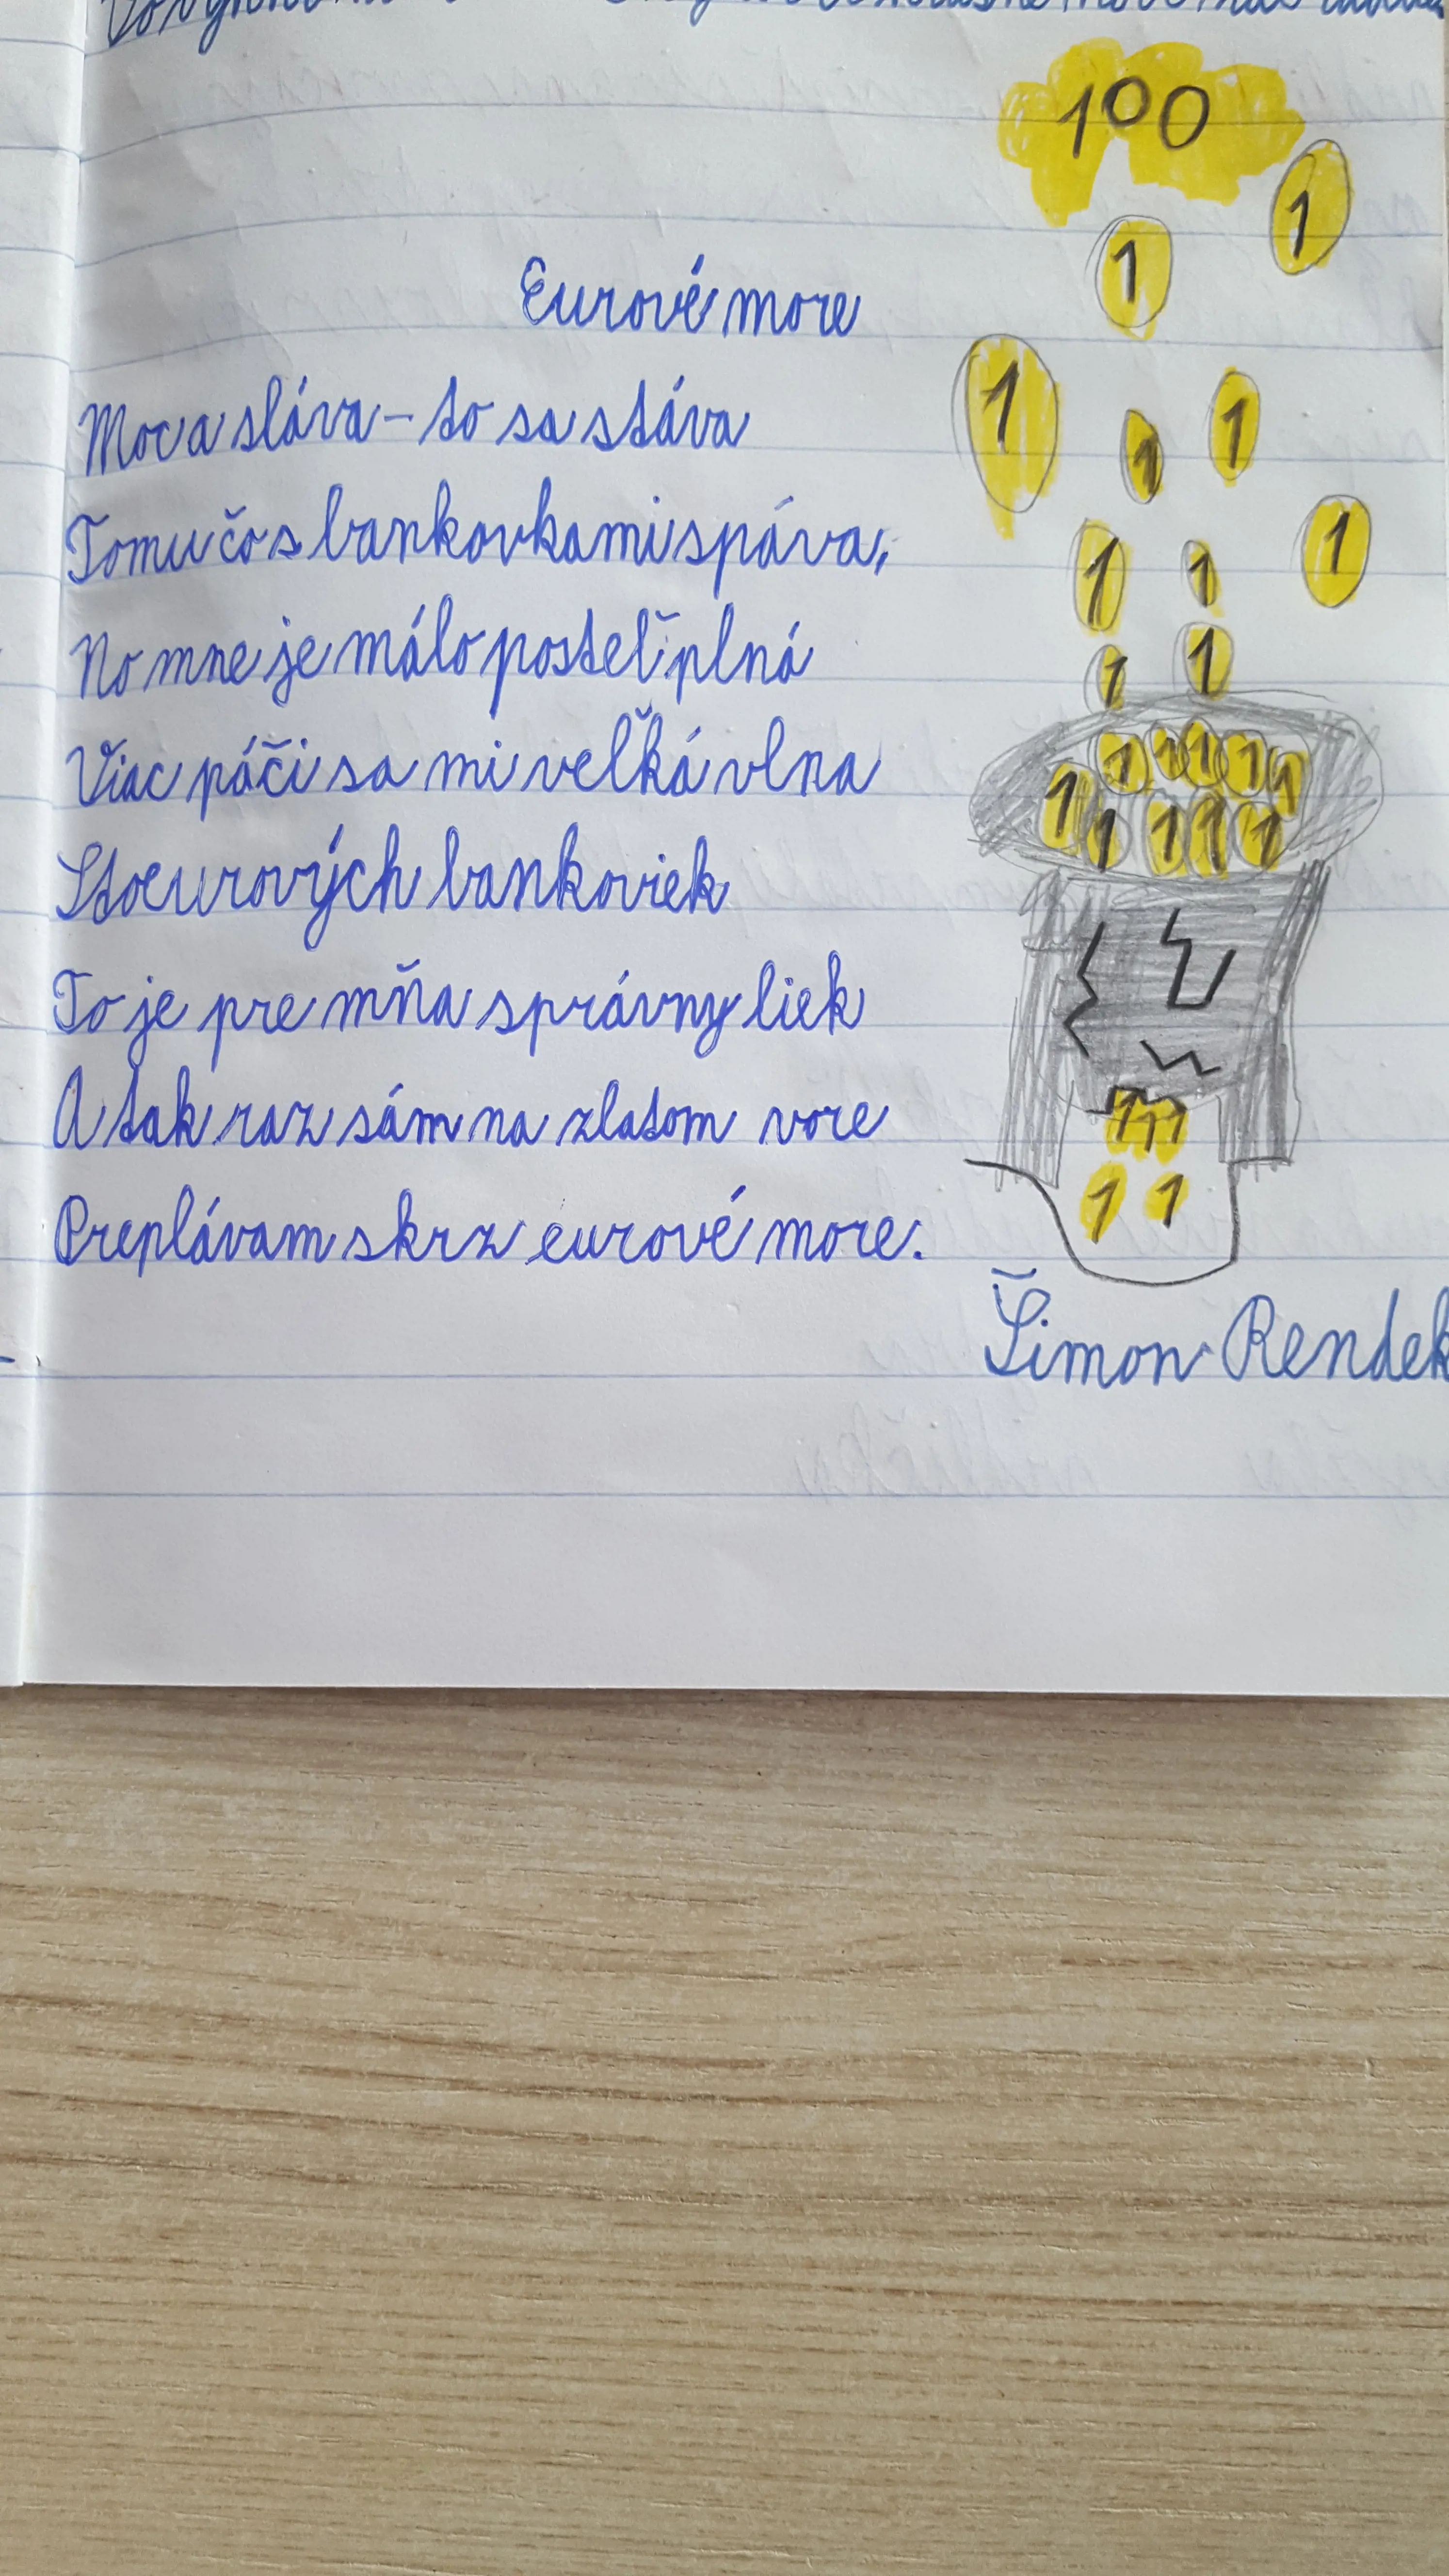 100
1
1
Eurové more
1
1
1
Moc a sláva - to sa stáva
Tomu čo s bankovkami spáva,
1
1
1
No mne je málo posteľ plná
1
1
Viac páči sa mi veľká vlna
1 1 1 1 1
1 1 1 1 1
Stoeurových bankoviek
To je pre mňa správny liek
A tak raz sám na zlatom vore
1 1 1
Preplávam skrz eurové more.
1 1
Šimon Rendek